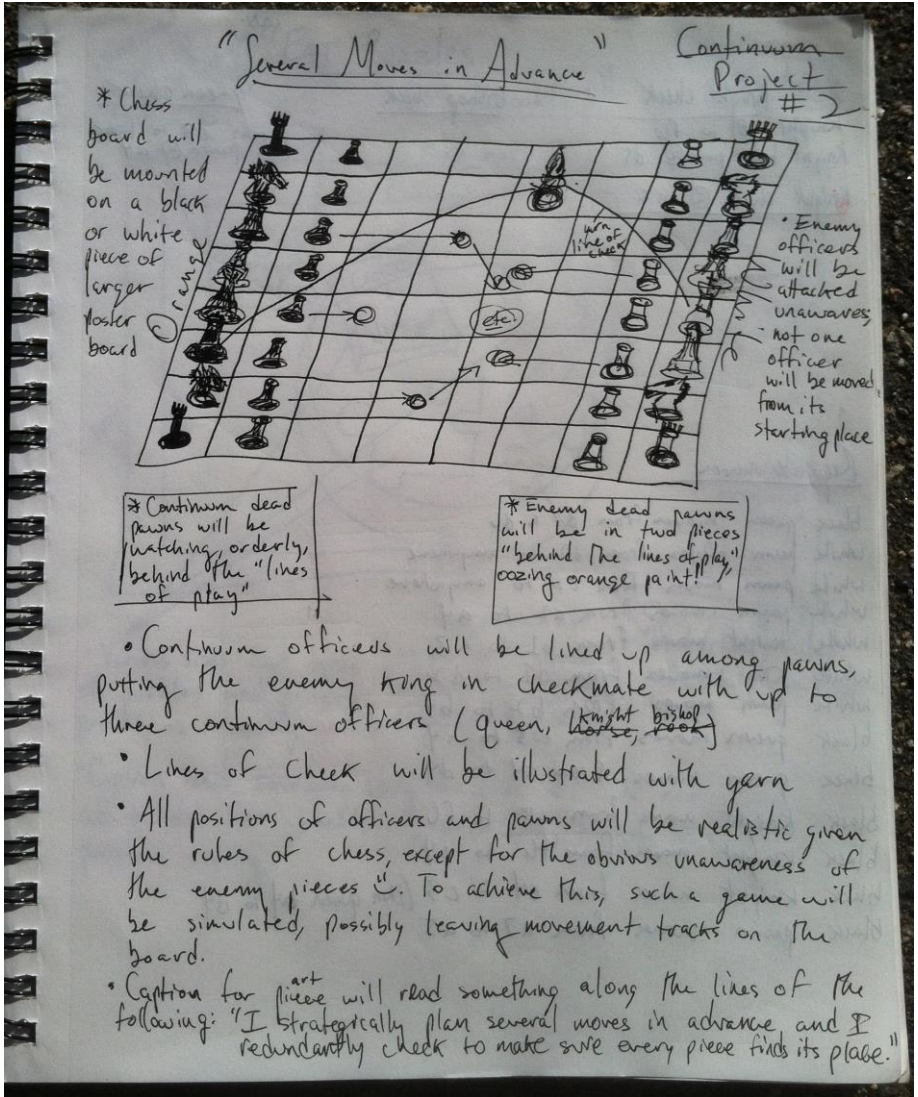 "Several Moves in Advance"
Continuum
Project
#2
* Chess
board will
be mounted
on a black
or white
piece of
larger
poster
board
Orange
yarn
line of
check
etc.
• Enemy
officers
will be
attacked
unawares;
not one
officer
will be moved
from its
starting place
* Continuum dead
pawns will be
watching, orderly,
behind the "lines
of play"
* Enemy dead pawns
will be in two pieces
"behind the lines of play,"
oozing orange paint!!
• Continuum officers will be lined up among pawns,
putting the enemy King in checkmate with up to
three continuum officers (queen, horse, knight rook bishop)
• Lines of check will be illustrated with yarn
• All positions of officers and pawns will be realistic given
the rules of chess, except for the obvious unawareness of
the enemy pieces. To achieve this, such a game will
be simulated, possibly leaving movement tracks on the
board.
• Caption for art piece will read something along the lines of the
following: "I strategically plan several moves in advance, and I
redundantly check to make sure every piece finds its place."